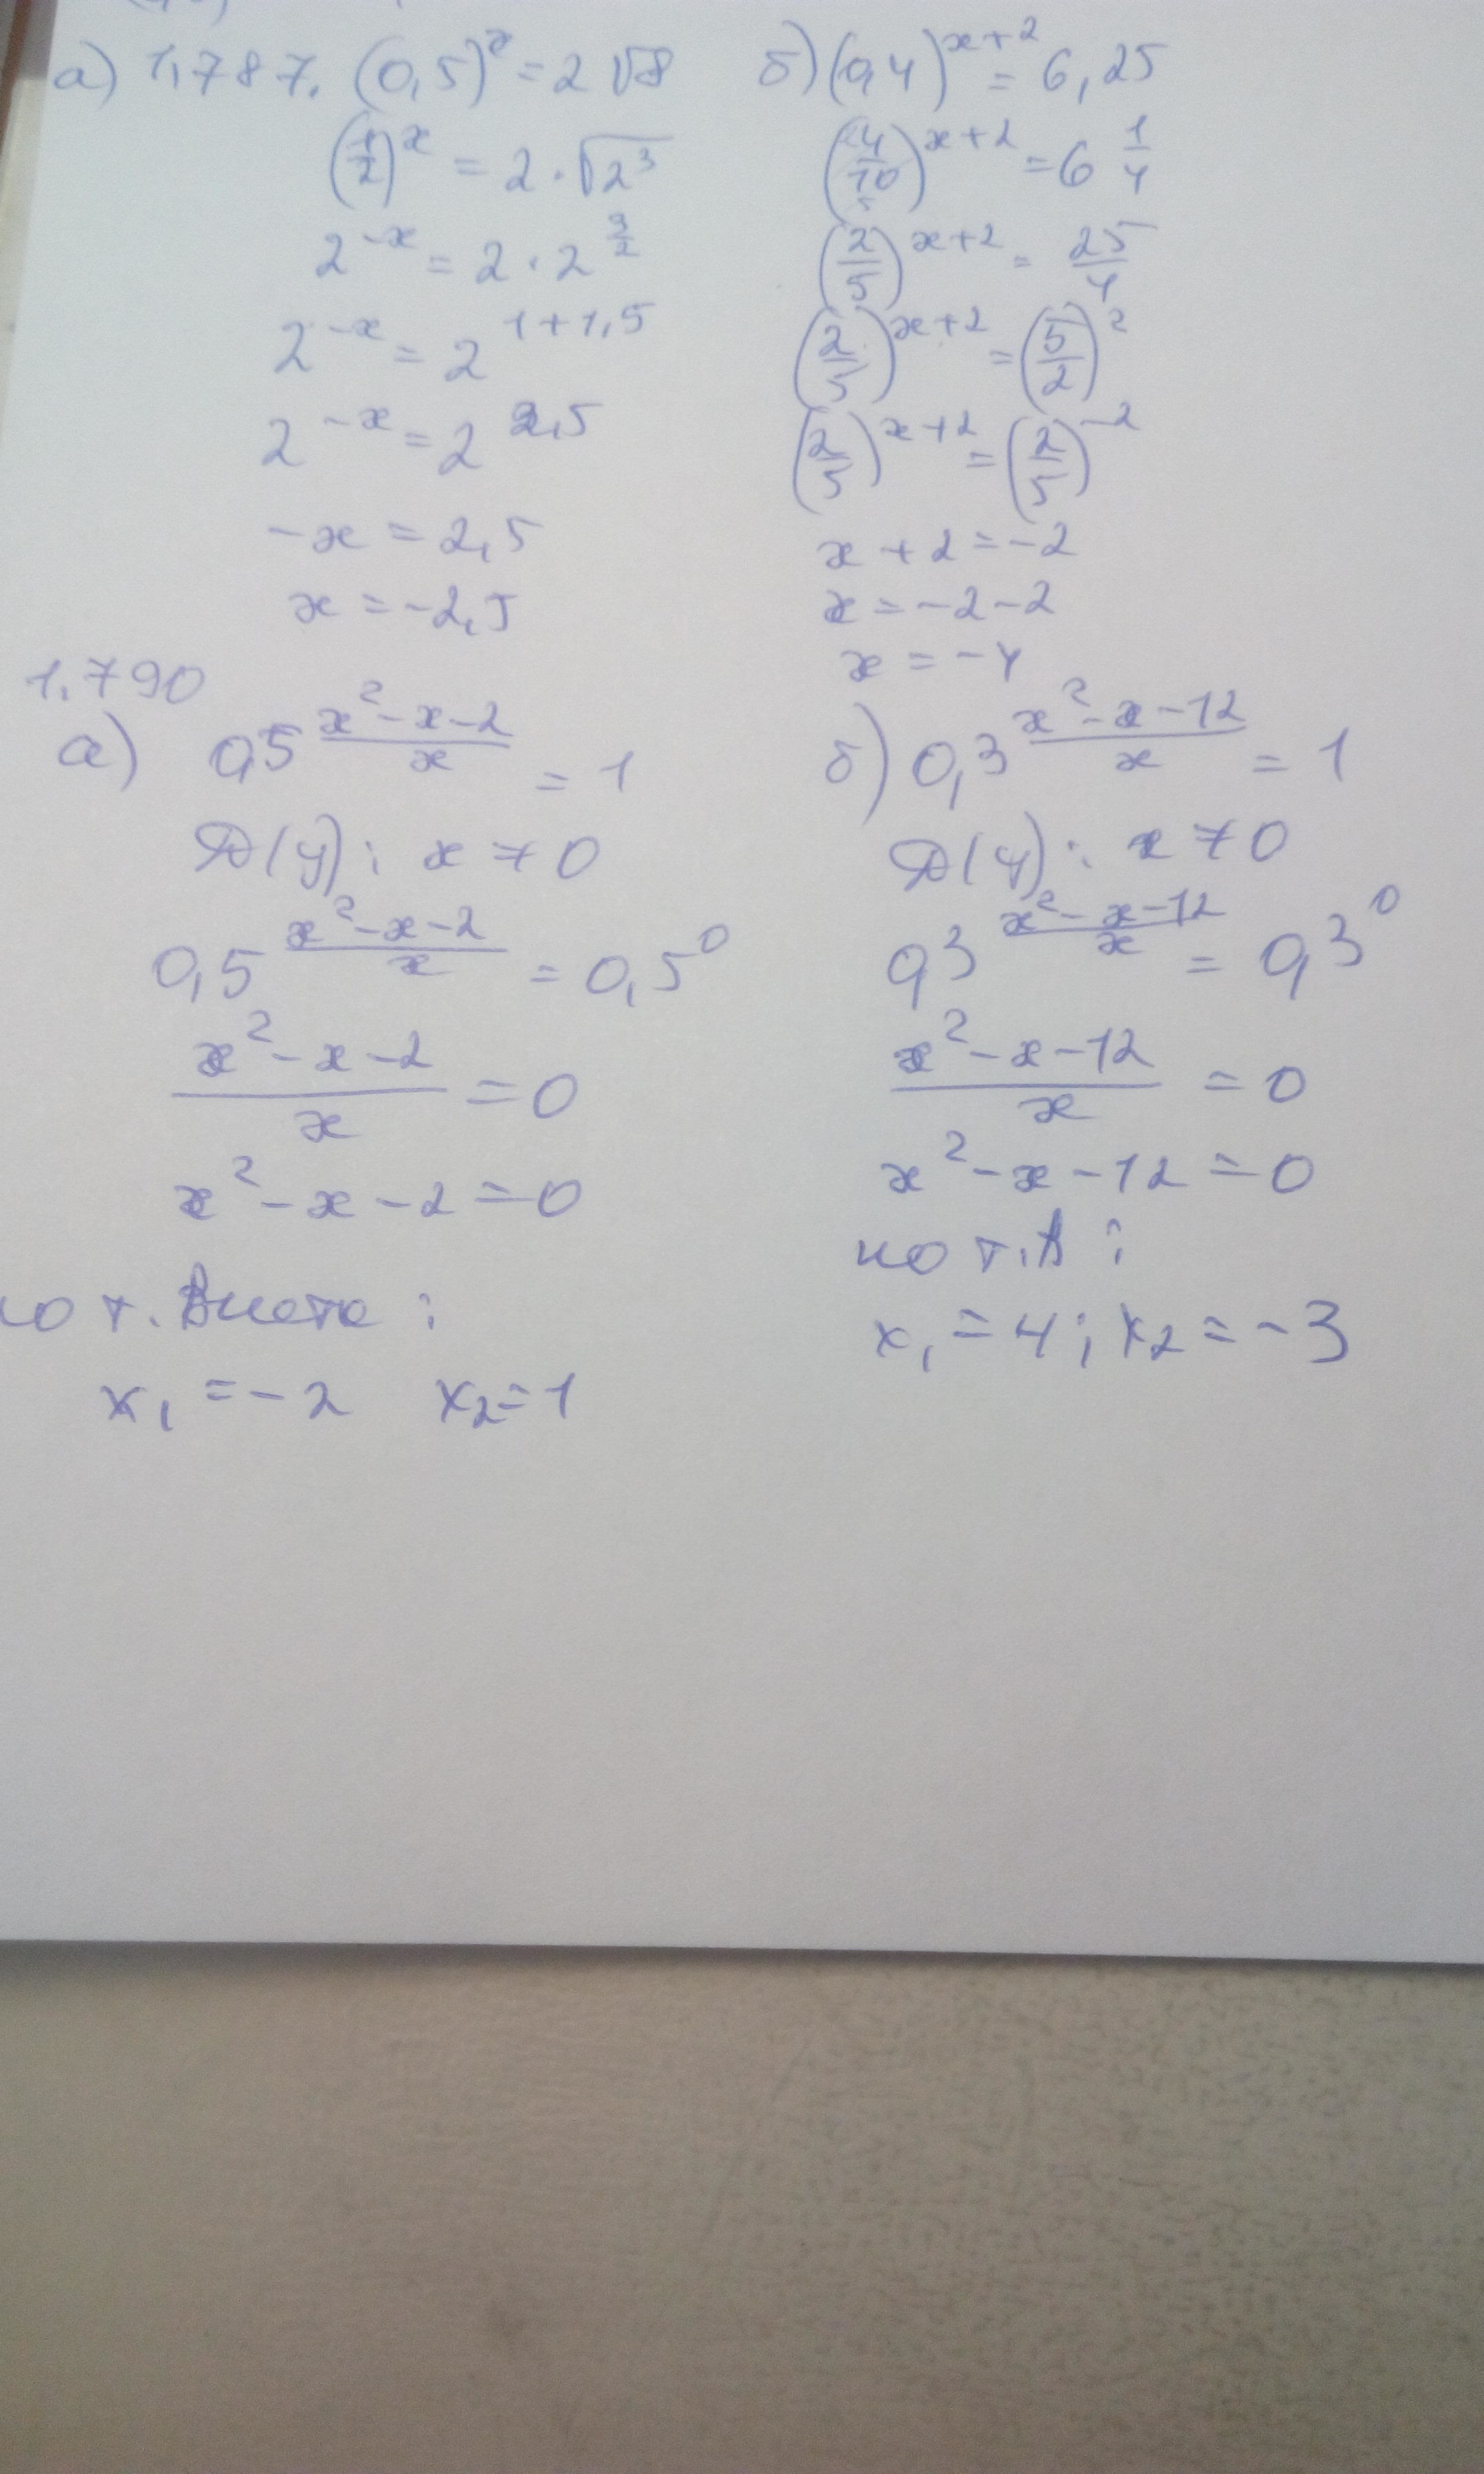 а) 1.787. (0,5)^x = 2√8
(1/2)^x = 2·√2^3
2^-x = 2·2^3/2
2^-x = 2^1+1,5
2^-x = 2^2,5
-x = 2,5
x = -2,5
б) (0,4)^x+2 = 6,25
(4/10)^x+2 = 6 1/4
(2/5)^x+2 = 25/4
(2/5)^x+2 = (5/2)^2
(2/5)^x+2 = (2/5)^-2
x + 2 = -2
x = -2-2
x = -4
1.790
а) 0,5^(x^2-x-2)/x = 1
D(y): x ≠ 0
0,5^(x^2-x-2)/x = 0,5^0
(x^2-x-2)/x = 0
x^2-x-2=0
по т. Виета:
x1 = -2 x2=1
б) 0,3^(x^2-x-12)/x = 1
D(y): x ≠ 0
0,3^(x^2-x-12)/x = 0,3^0
(x^2-x-12)/x = 0
x^2-x-12=0
по т.В:
x1 = 4; x2 = -3